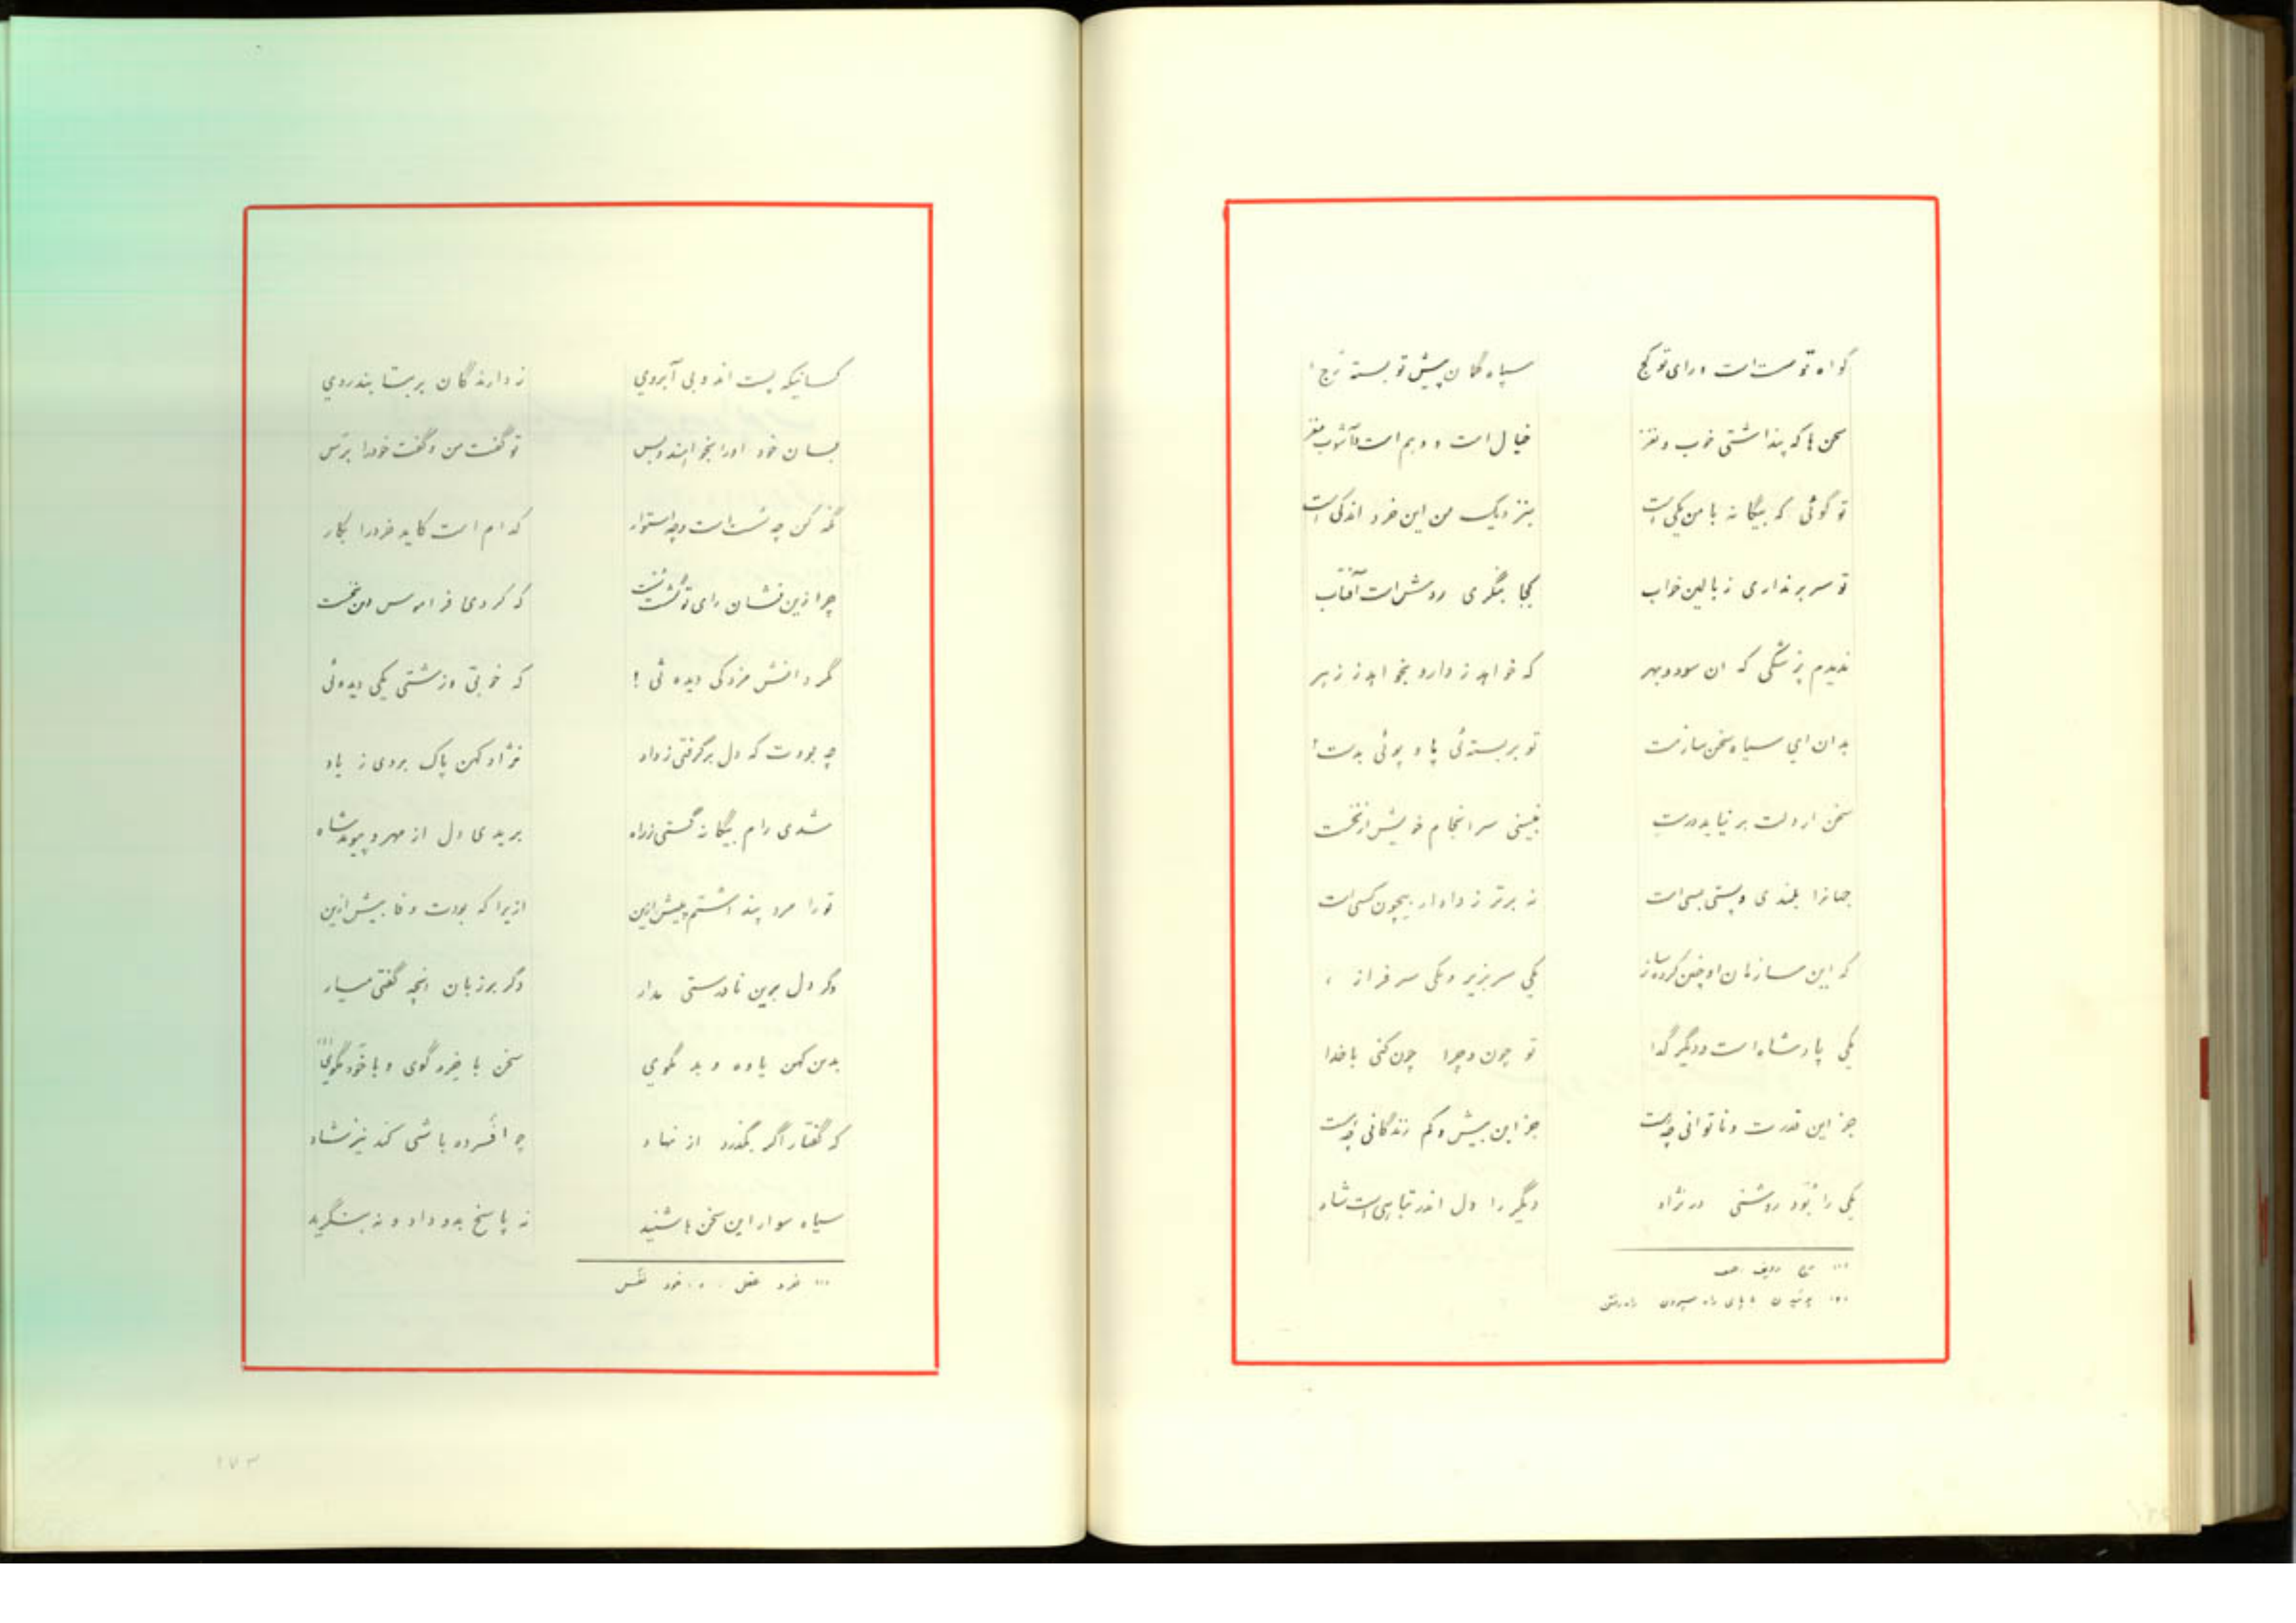 گواه تو مست است و رای تو کج سپاه گمان پیش تو بسته رج
سخن ها که پنداشتی خوب و نغز خیال است و وهم است و آشوب مغز
تو گوئی که بیگانه با من یکی است بنزدیک من این خرد اندکی است
تو سر بر نداری ز بالین خواب کجا بنگری روشن است آفتاب
ندیدم پزشکی که ان سود و بهر که خواهد ز دارو بخواهد ز زهر
بدان ای سیاه سخن ساز مست تو بر بسته ئی پا و پوئی بدست
سخن از دلت بر نیاید درست نبینی سر انجام خویش از نخست
جهانرا بلندی و پستی بسی است نه برتر ز دادار بیچون کسی است
که این سازمان او چنین کرده ساز یکی سر بزیر و یکی سر فراز
یکی پادشاه است و دیگر گدا تو چون و چرا چون کنی با خدا
جز این قدرت و ناتوانی چیست جز این بیش و کم زندگانی چیست
یکی را بُوَد روشنی در نژاد دیگر را دل اندر تباهی است شاد
رج ردیف صف
پوئیدن پای راه سپردن راه رفتن
کسانیکه پست اند و بی آبروی ز دارندگان بر بتابند روی
بسان خود او را بخواهند و بس تو گفت من و گفت خود را برس
نگه کن چه سُست است و چه استوار کدام است کاید خرد را بکار
چرا زین نشان رای تو گشت سُست که کردی فراموس دین نخست
مگر دانش مزدکی دیده ئی ! که خوبی و زشتی یکی دیده ئی
چه بودت که دل برگرفتی ز داد نژاد کهن پاک بردی ز یاد
شدی رام بیگانه گشتی ز راه بریدی دل از مهر و پیوند شاه
تو را مرد پنداشتم پیش ازین ازیرا که بودت وفا بیش ازین
دگر دل برین نادرستی مدار دگر بر زبان انچه گفتی میار
بدین کهن یاوه و بد مگوی سخن با خرد گوی و با خود مگوی
که گفتار اگر بگذرد از نهاد چو افسرده باشی کند نیز شاد
سیاه سوار این سخن ها شنید نه پاسخ بدو داد و نه بنگرید
خرد عقل . خود نفس
۱۷۳